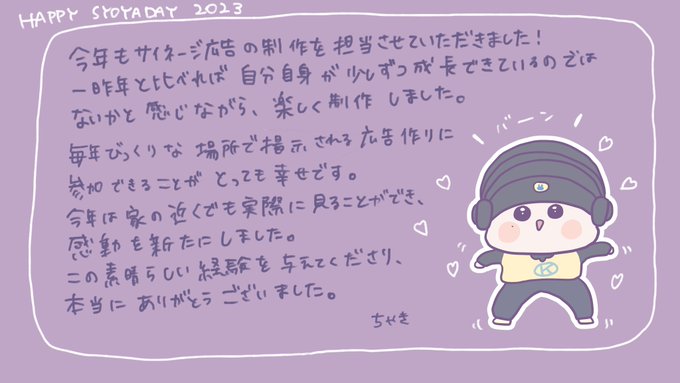 HAPPY SYOYADAY 2023
今年もサイネージ広告の制作を担当させていただきました!
一昨年と比べれば自分自身が少しずつ成長できているのでは
ないかと感じながら、楽しく制作しました。
毎年びっくりな場所で掲示される広告作りに
参加できることがとっても幸せです。
今年は家の近くでも実際に見ることができ、
感動を新たにしました。
この素晴らしい経験を与えてくださり、
本当にありがとうございました。
ちゃき
バーン
K